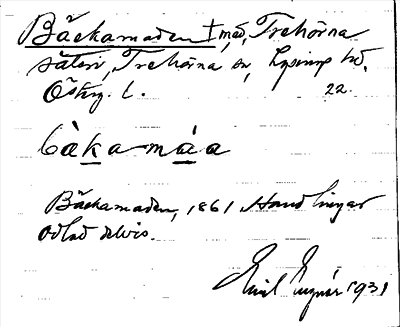 Bäckamaden † mad, Trehörna
säteri, Trehörna sn, Lysings hd.
Östg. l. 22.
bàkamáa
Bäckamaden, 1861 Handlingar
odlad delvis.
Emil 1931